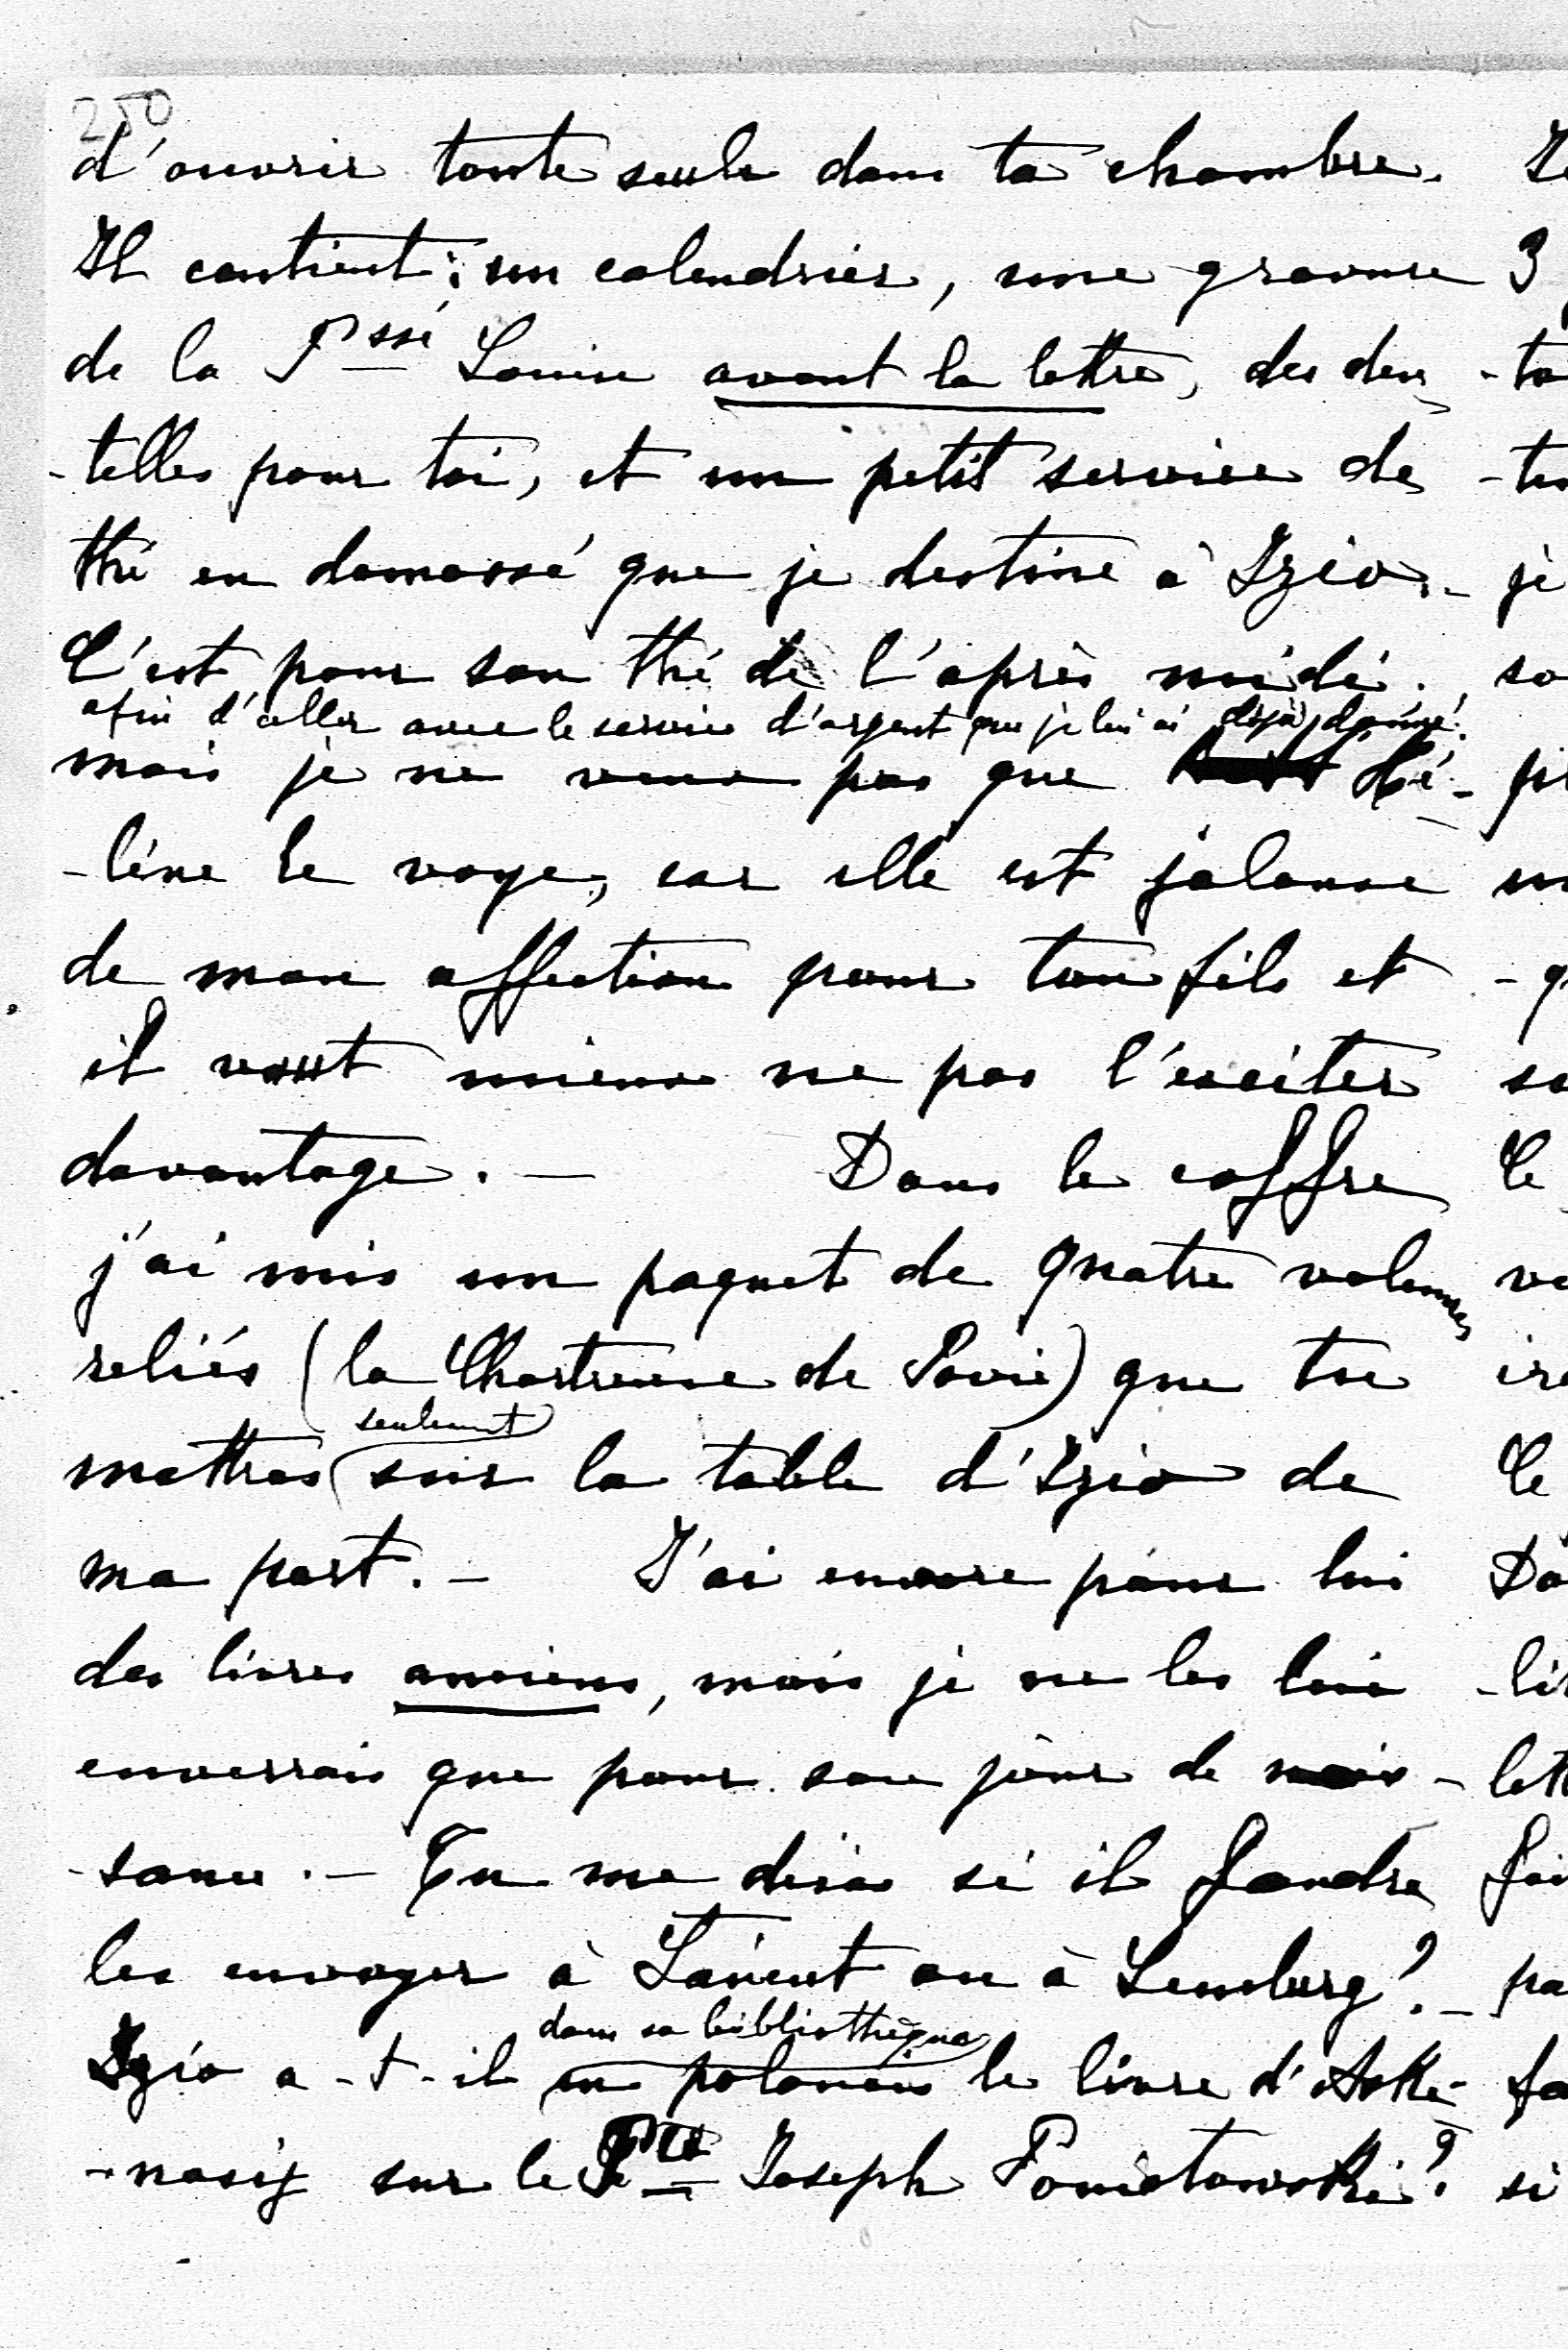 250
d'ouvrir toute seule dans ta chambre.
Il contient : un calendrier, une gravure
de la Pssé Louise avant la lettre, des den
-telles pour toi, et un petit service de
thé en damassé que je destine à Izio.-
C'est pour son thé de l'après midi.
afin d'aller avec le service d'argent que je lui ai déjà donné.
mais je ne veux pas que Hé-
-lène le voye, car elle est jalouse
de mon affection pour ton fils et
il vaut mieux ne pas l'exciter
davantage. — Dans le coffre
j'ai mis un paquet de quatre volumes
reliés (la Chartreuse de Pavie) que tu
seulement
mettras sur la table d'Izio de
ma part. — J'ai encore pour lui
des livres anciens, mais je ne les lui
enverrais que pour son jour de nais-
-sance. — Tu me diras si il faudra
les envoyer à Łańcut ou à Lemberg ? -
dans sa bibliothèque
Izio a-t-il en polonais le livre d'Aske-
-nasy sur le Pce Joseph Poniatowski ?
3
-ta
je
so
-q
le
-lett
pa
si